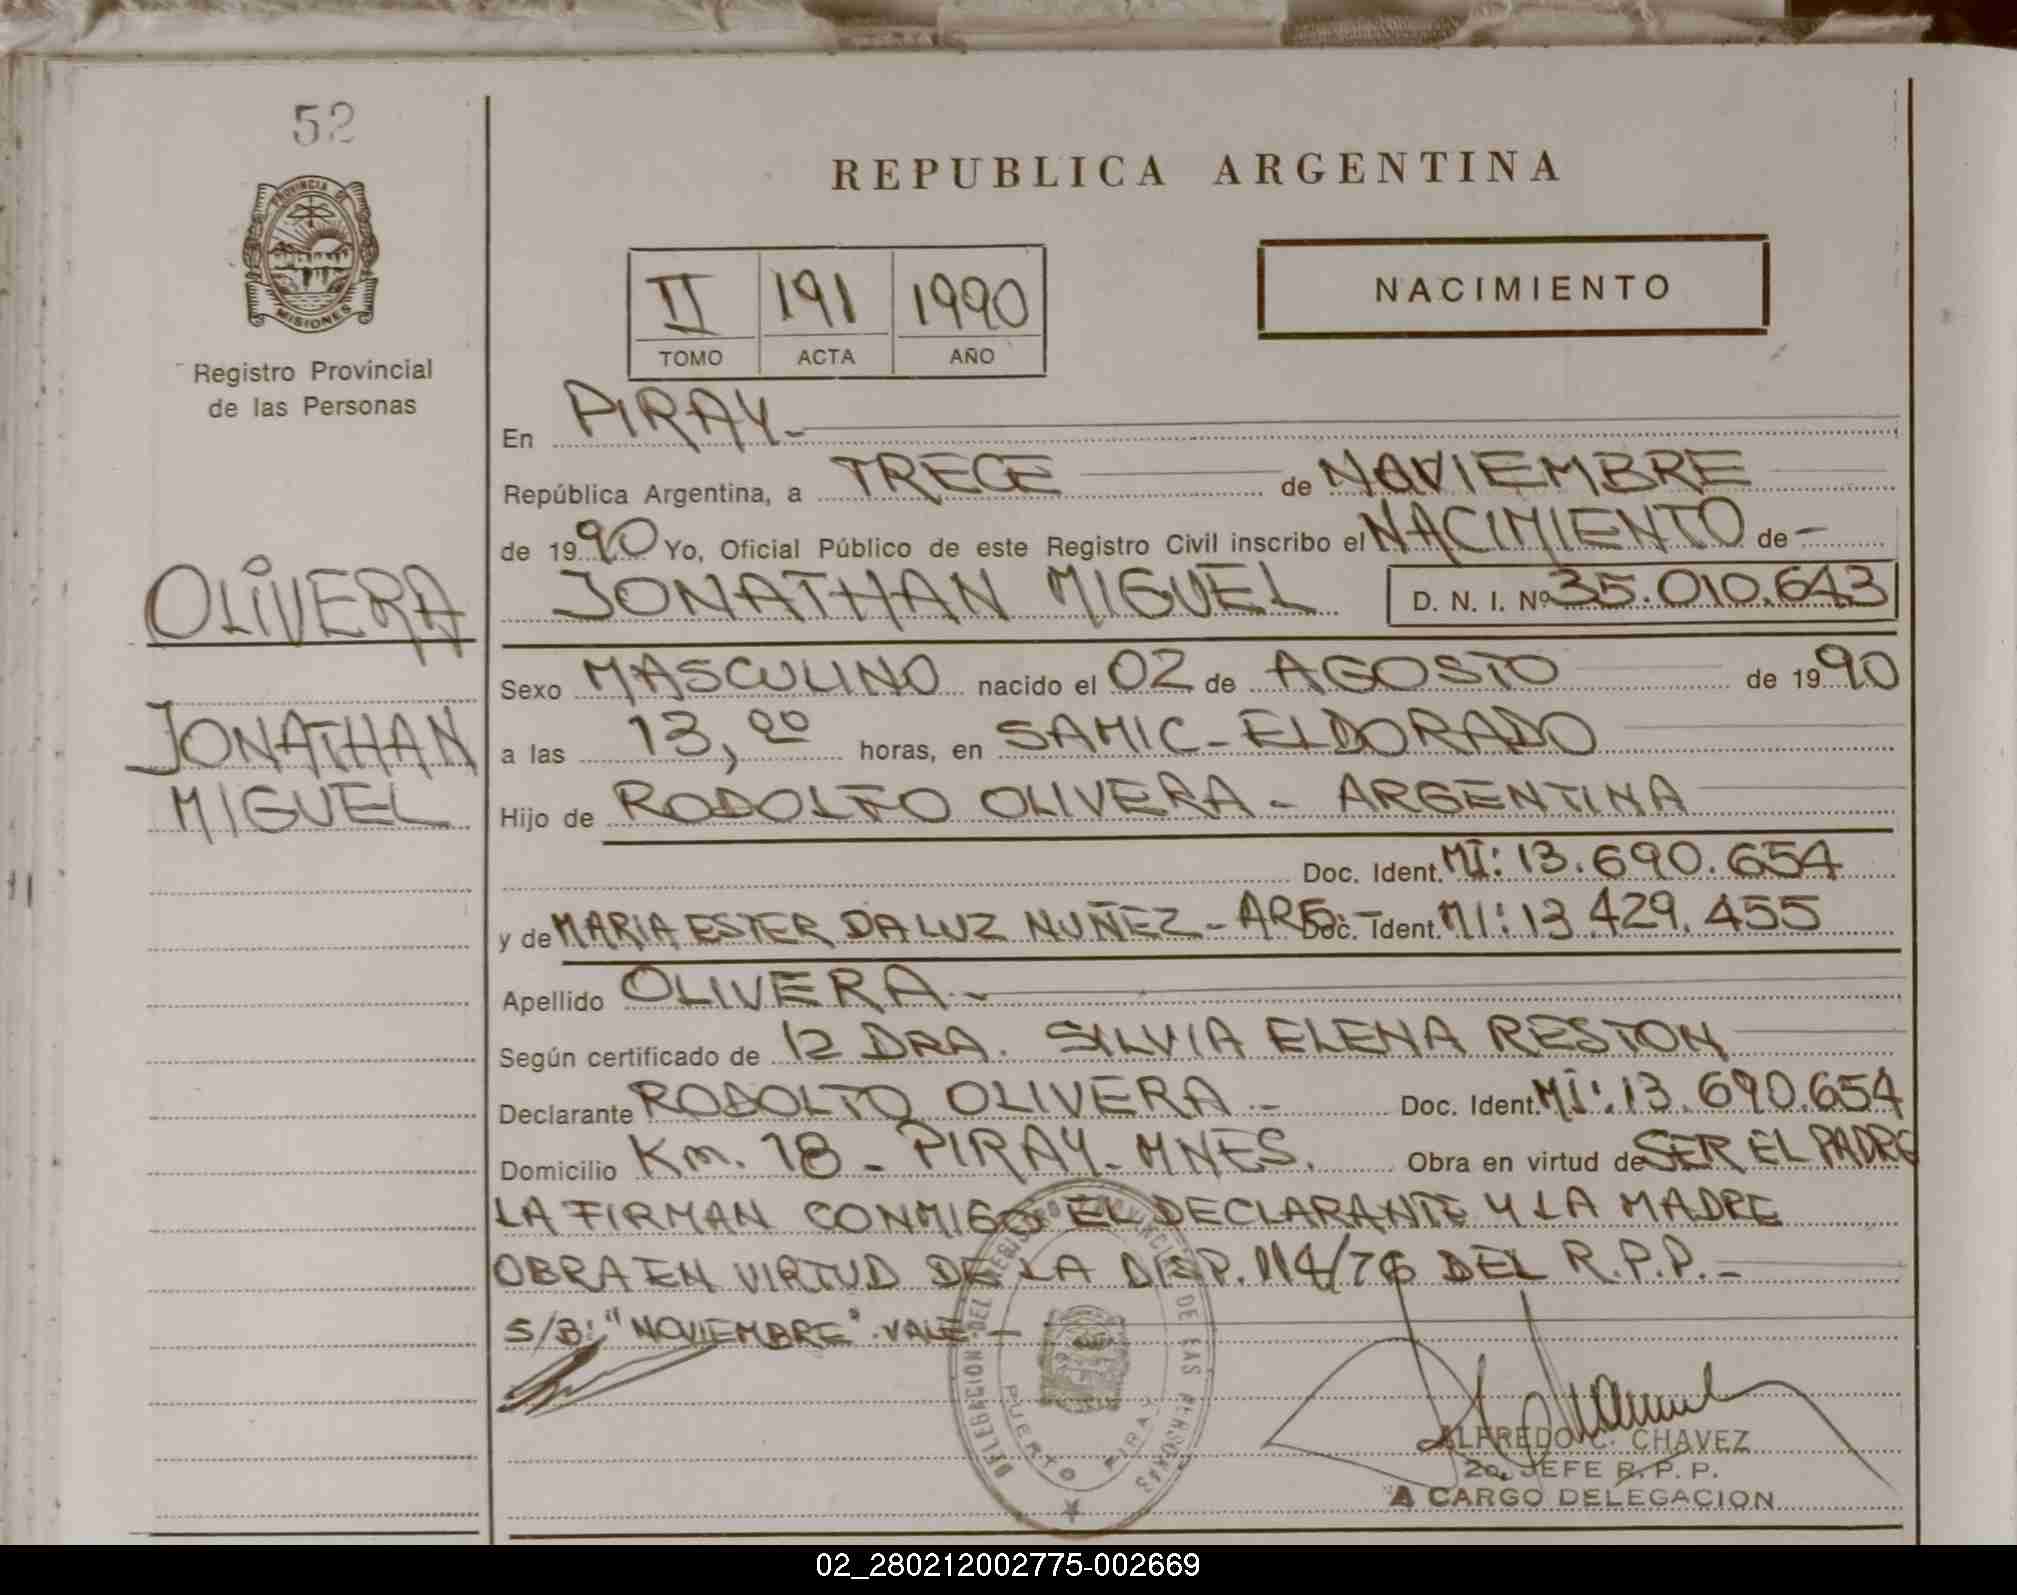 52
PROVINCIA DE
MISIONES
Registro Provincial
de las Personas
OLIVERA
JONATHAN
MIGUEL
REPUBLICA ARGENTINA
II 191 1990
TOMO ACTA AÑO
NACIMIENTO
En PIRAY.-
República Argentina, a TRECE de NOVIEMBRE
de 1990 Yo, Oficial Público de este Registro Civil inscribo el NACIMIENTO de -
JONATHAN MIGUEL D. N. I. Nº 35.010.643
Sexo MASCULINO nacido el 02 de AGOSTO de 1990
a las 13,00 horas, en SAMIC - ELDORADO
Hijo de RODOLFO OLIVERA - ARGENTINA
Doc. Ident. MI: 13.690.654
y de MARIA ESTER DA LUZ NUÑEZ - ARG.- Doc. Ident. MI: 13.429.455
Apellido OLIVERA.-
Según certificado de 12 DRA. SILVIA ELENA RESTON
Declarante RODOLFO OLIVERA - Doc. Ident. MI: 13.690.654
Domicilio Km. 18 - PIRAY - MNES. Obra en virtud de SER EL PADRE
LA FIRMAN CONMIGO EL DECLARANTE Y LA MADRE
OBRA EN VIRTUD DE LA DISP. 114/76 DEL R.P.P.-
S/B: "NOVIEMBRE". VALE.-
DELEGACION DEL REGISTRO PROVINCIAL DE LAS PERSONAS
PUERTO PIRAY
ALFREDO C. CHAVEZ
2o. JEFE R. P. P.
A CARGO DELEGACION
02_280212002775-002669